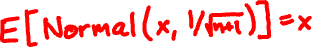 E[Normal(x, 1/√n+1)]=x